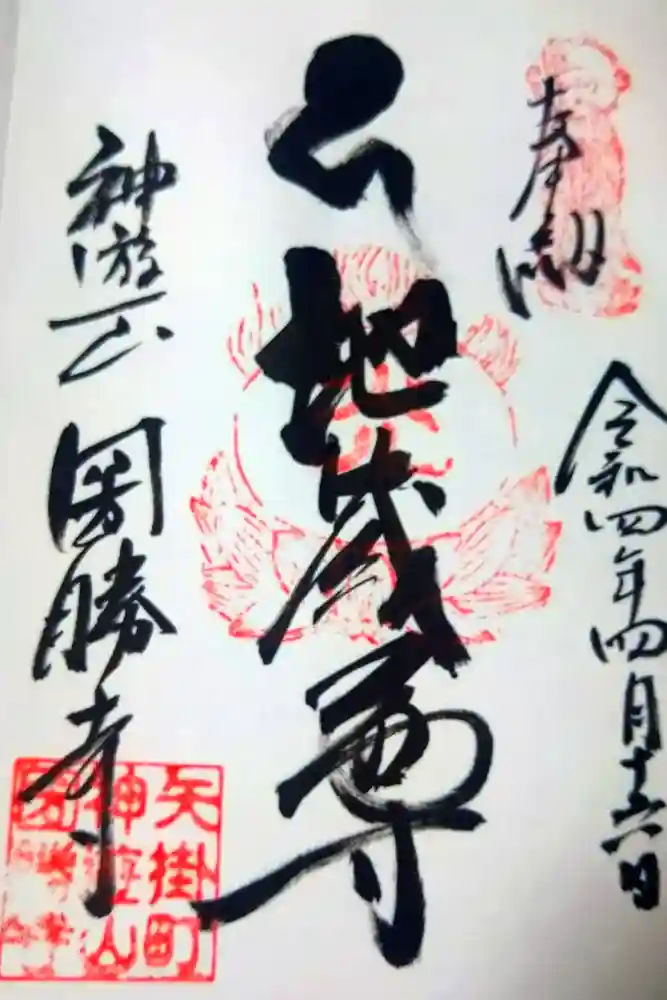 奉拝
令和四年四月十六日
地蔵尊
神遊山 圀勝寺
矢掛町
神遊山
圀勝寺